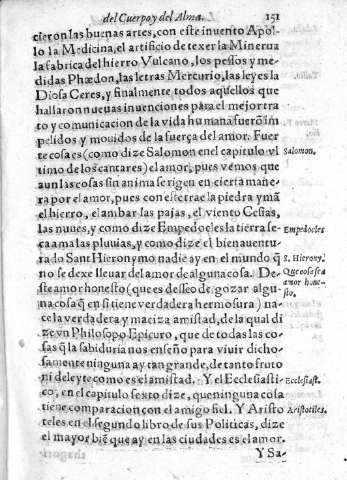 del Cuerpo y del Alma. 151
cieron las buenas artes, con este inuento Apol-
lo la Medicina, el artificio de texer la Minerua
la fabrica del hierro Vulcano, los pessos y me-
didas Phædon, las letras Mercurio, las leyes la
Diosa Ceres, y finalmente todos aquellos que
hallaron nueuas inuenciones para el mejor tra-
to y comunicacion de la vida humana fuerõ im
pelidos y mouidos de la fuerça del amor. Fuer
te cosa es (como dize Salomon en el capitulo vl
timo de los cantares) el amor, pues vemos que
Salomon.
aun las cosas sin anima se rigen en cierta mañe-
ra por el amor, pues con el se trae la piedra ymã
el hierro, el ambar las pajas, el viento Cesias,
las nuues, y como dize Empedocles la tierra se-
Empedocles
ca ama las pluuias, y como dize el bienauentu-
rado Sant Hieronymo nadie ay en el mundo q̃
S. Hierony.
no se dexe lleuar del amor de alguna cosa. De-
Que cosa sea
ste amor honesto (que es desseo de gozar algu-
amor hone-
na cosa q̃ en si tiene verdadera hermosura) na-
sto.
ce la verdadera y maciza amistad, de la qual di
ze vn Philosopo Epicuro, que de todas las co-
sas q̃ la sabiduria nos enseño para viuir dicho-
samente ninguna ay tan grande, de tanto fruto
ni deleyte como es el amistad. Y el Ecclesiasti-
Ecclesiast.
co, en el capitulo sexto dize, que ninguna cosa
tiene comparacion con el amigo fiel. Y Aristo
Aristotiles.
teles en el segundo libro de sus Politicas, dize
el mayor biẽ que ay en las ciudades es el amor.
Y Sa-